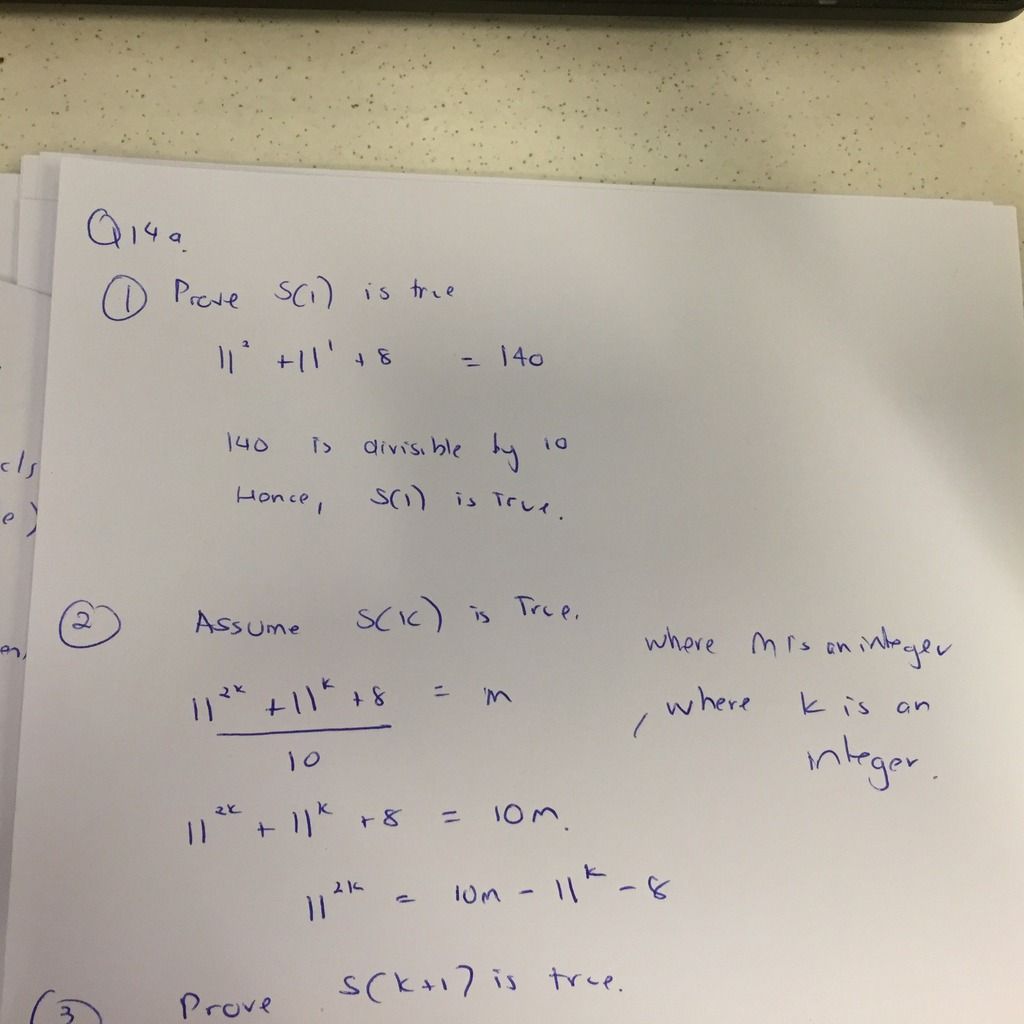 Q14a.
① Prove S(1) is true
11² + 11¹ + 8 = 140
140 is divisible by 10
Hence, S(1) is True.
② Assume S(k) is True.
where m is an integer
(11^{2k} + 11^k + 8)/10 = m , where k is an integer.
11^{2k} + 11^k + 8 = 10m.
11^{2k} = 10m - 11^k - 8
③ Prove S(k+1) is true.
cls
e)
en,